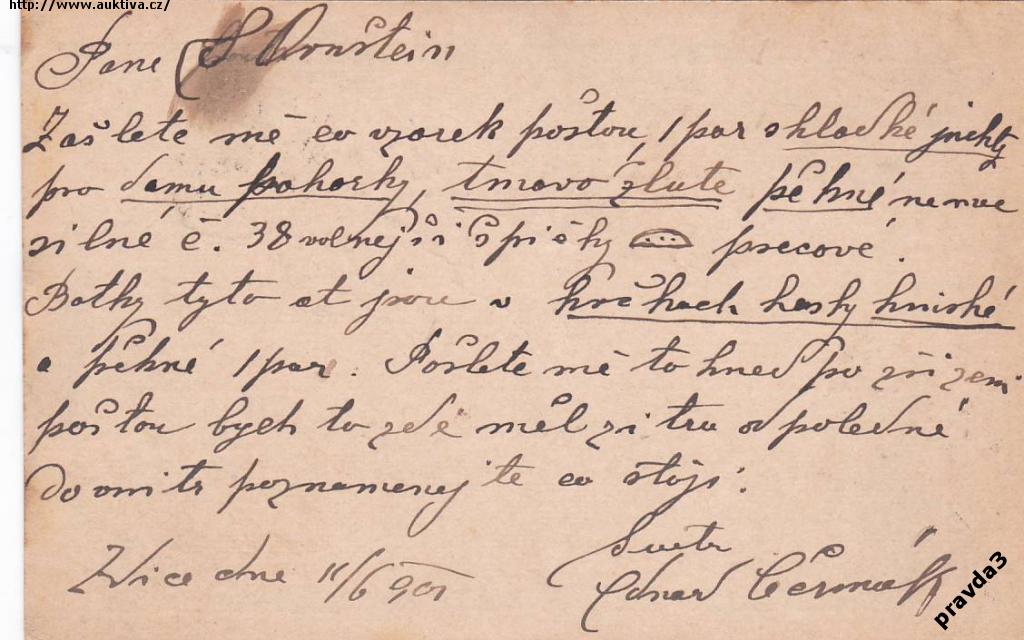 http://www.auktiva.cz/
Pane Ornstein
Zašlete mě co vzorek poštou, 1 par hladké juchty
pro damu, tmavo žlute pěkné
silné č. 38 volnejší špičky precové.
Botky tyto at jsou v hasky
a pěkné 1 par. Pošlete mě to hned po zřizeni
poštou bych to zde měl zitra odpoledné
do vnitř poznamenejte co stoji.
dne 11/6 901
Eduard Čermák
pravda3